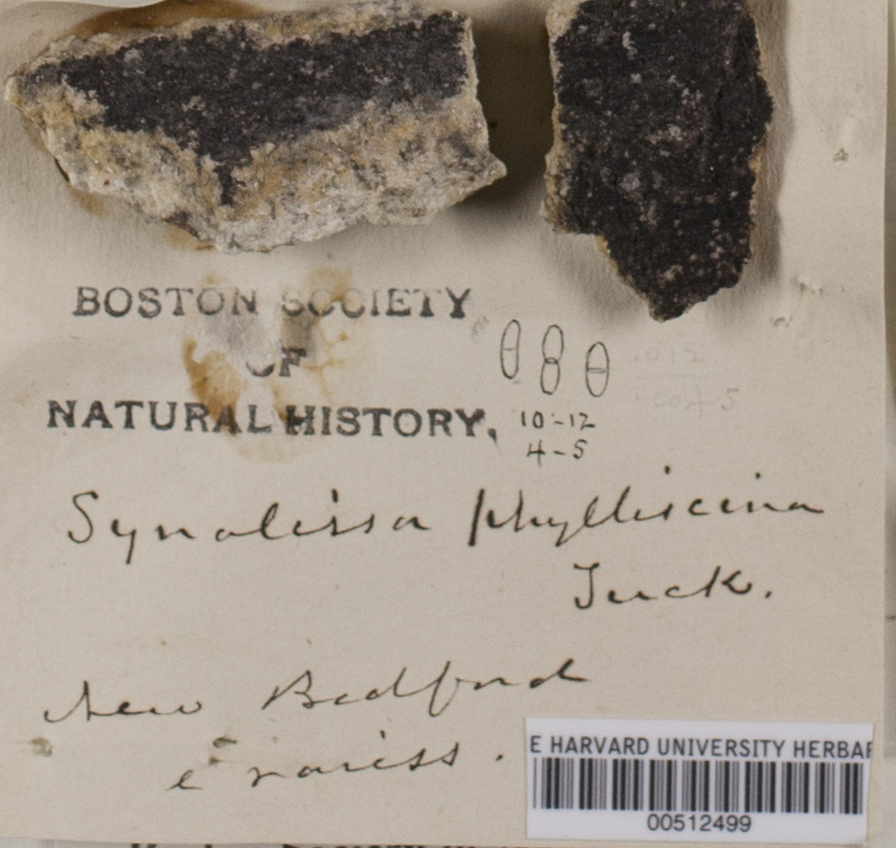 BOSTON SOCIETY
OF
NATURAL HISTORY.
10-12
4-5
Synalissa phylliscina
Tuck.
New Bedford
e rariss.
E HARVARD UNIVERSITY HERBAR
00512499